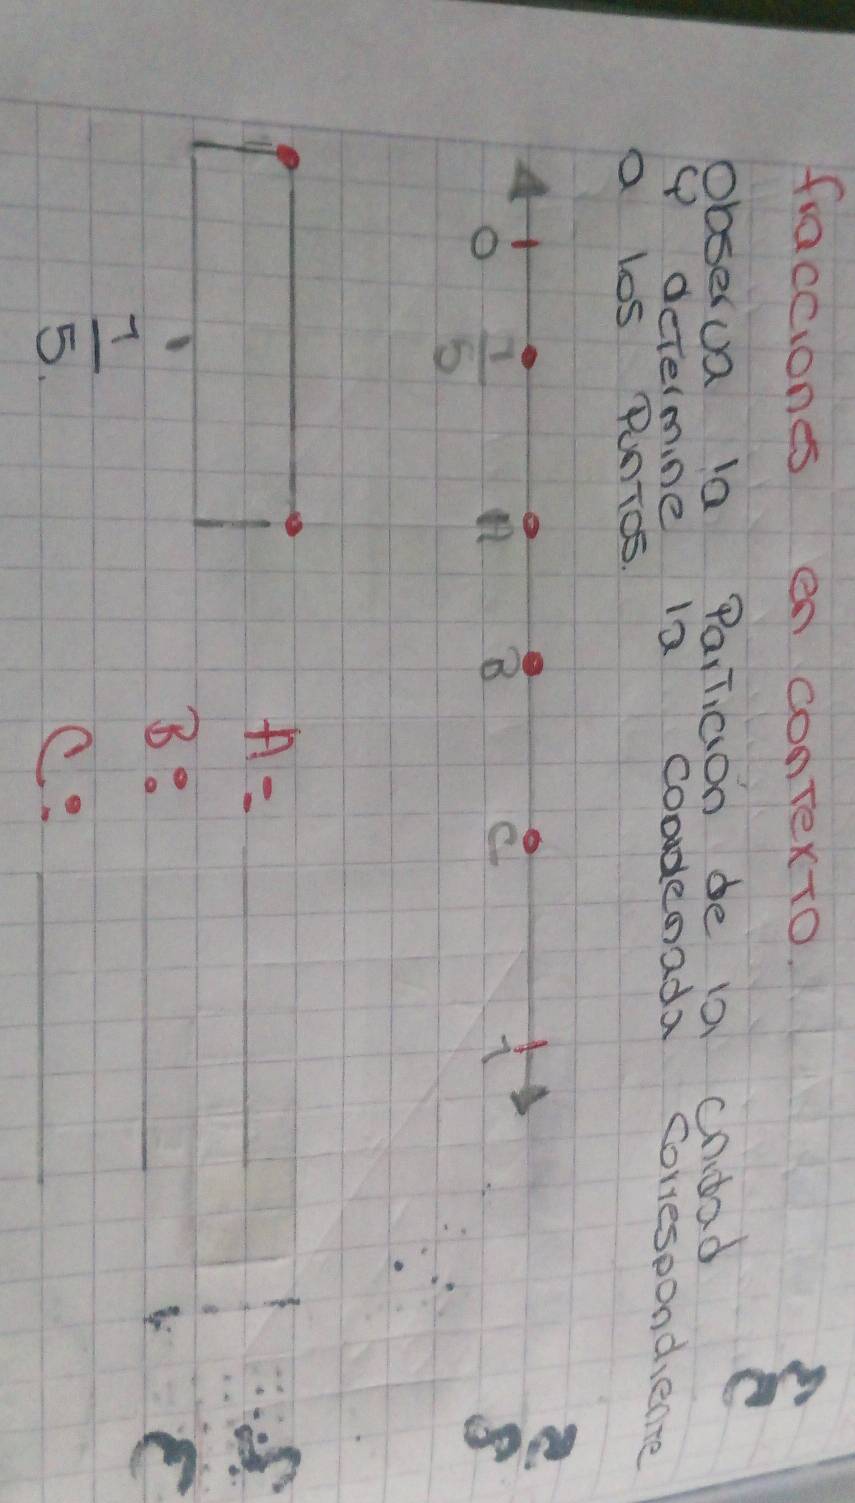 fracciones en conTexTo.
Observa la ParTición de la unidad
y deTermine la coordenada correspondienTe
a los PunTos.
0 1/5 A B C 1
1/5.
A:
B:
C: